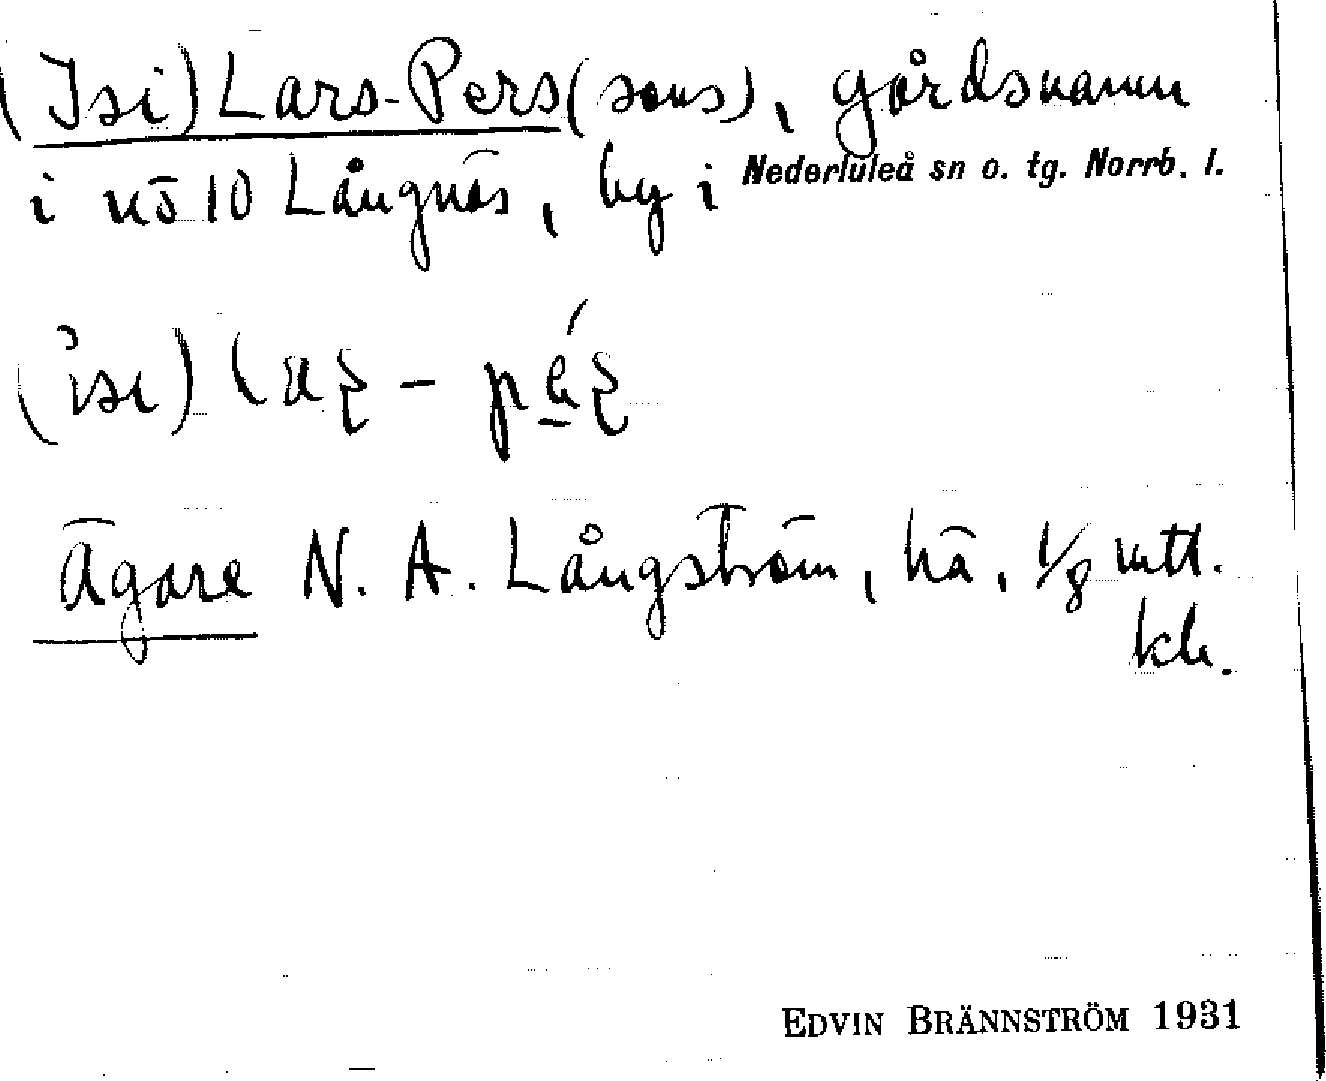 (Isi) Lars-Pers(sons), gårdsnamn
i nö 10 Långnäs, by i Nederluleå sn o. tg. Norrb. l.
Ägare N. A. Långström, hä, 1/8 mtl.
EDVIN BRÄNNSTRÖM 1931